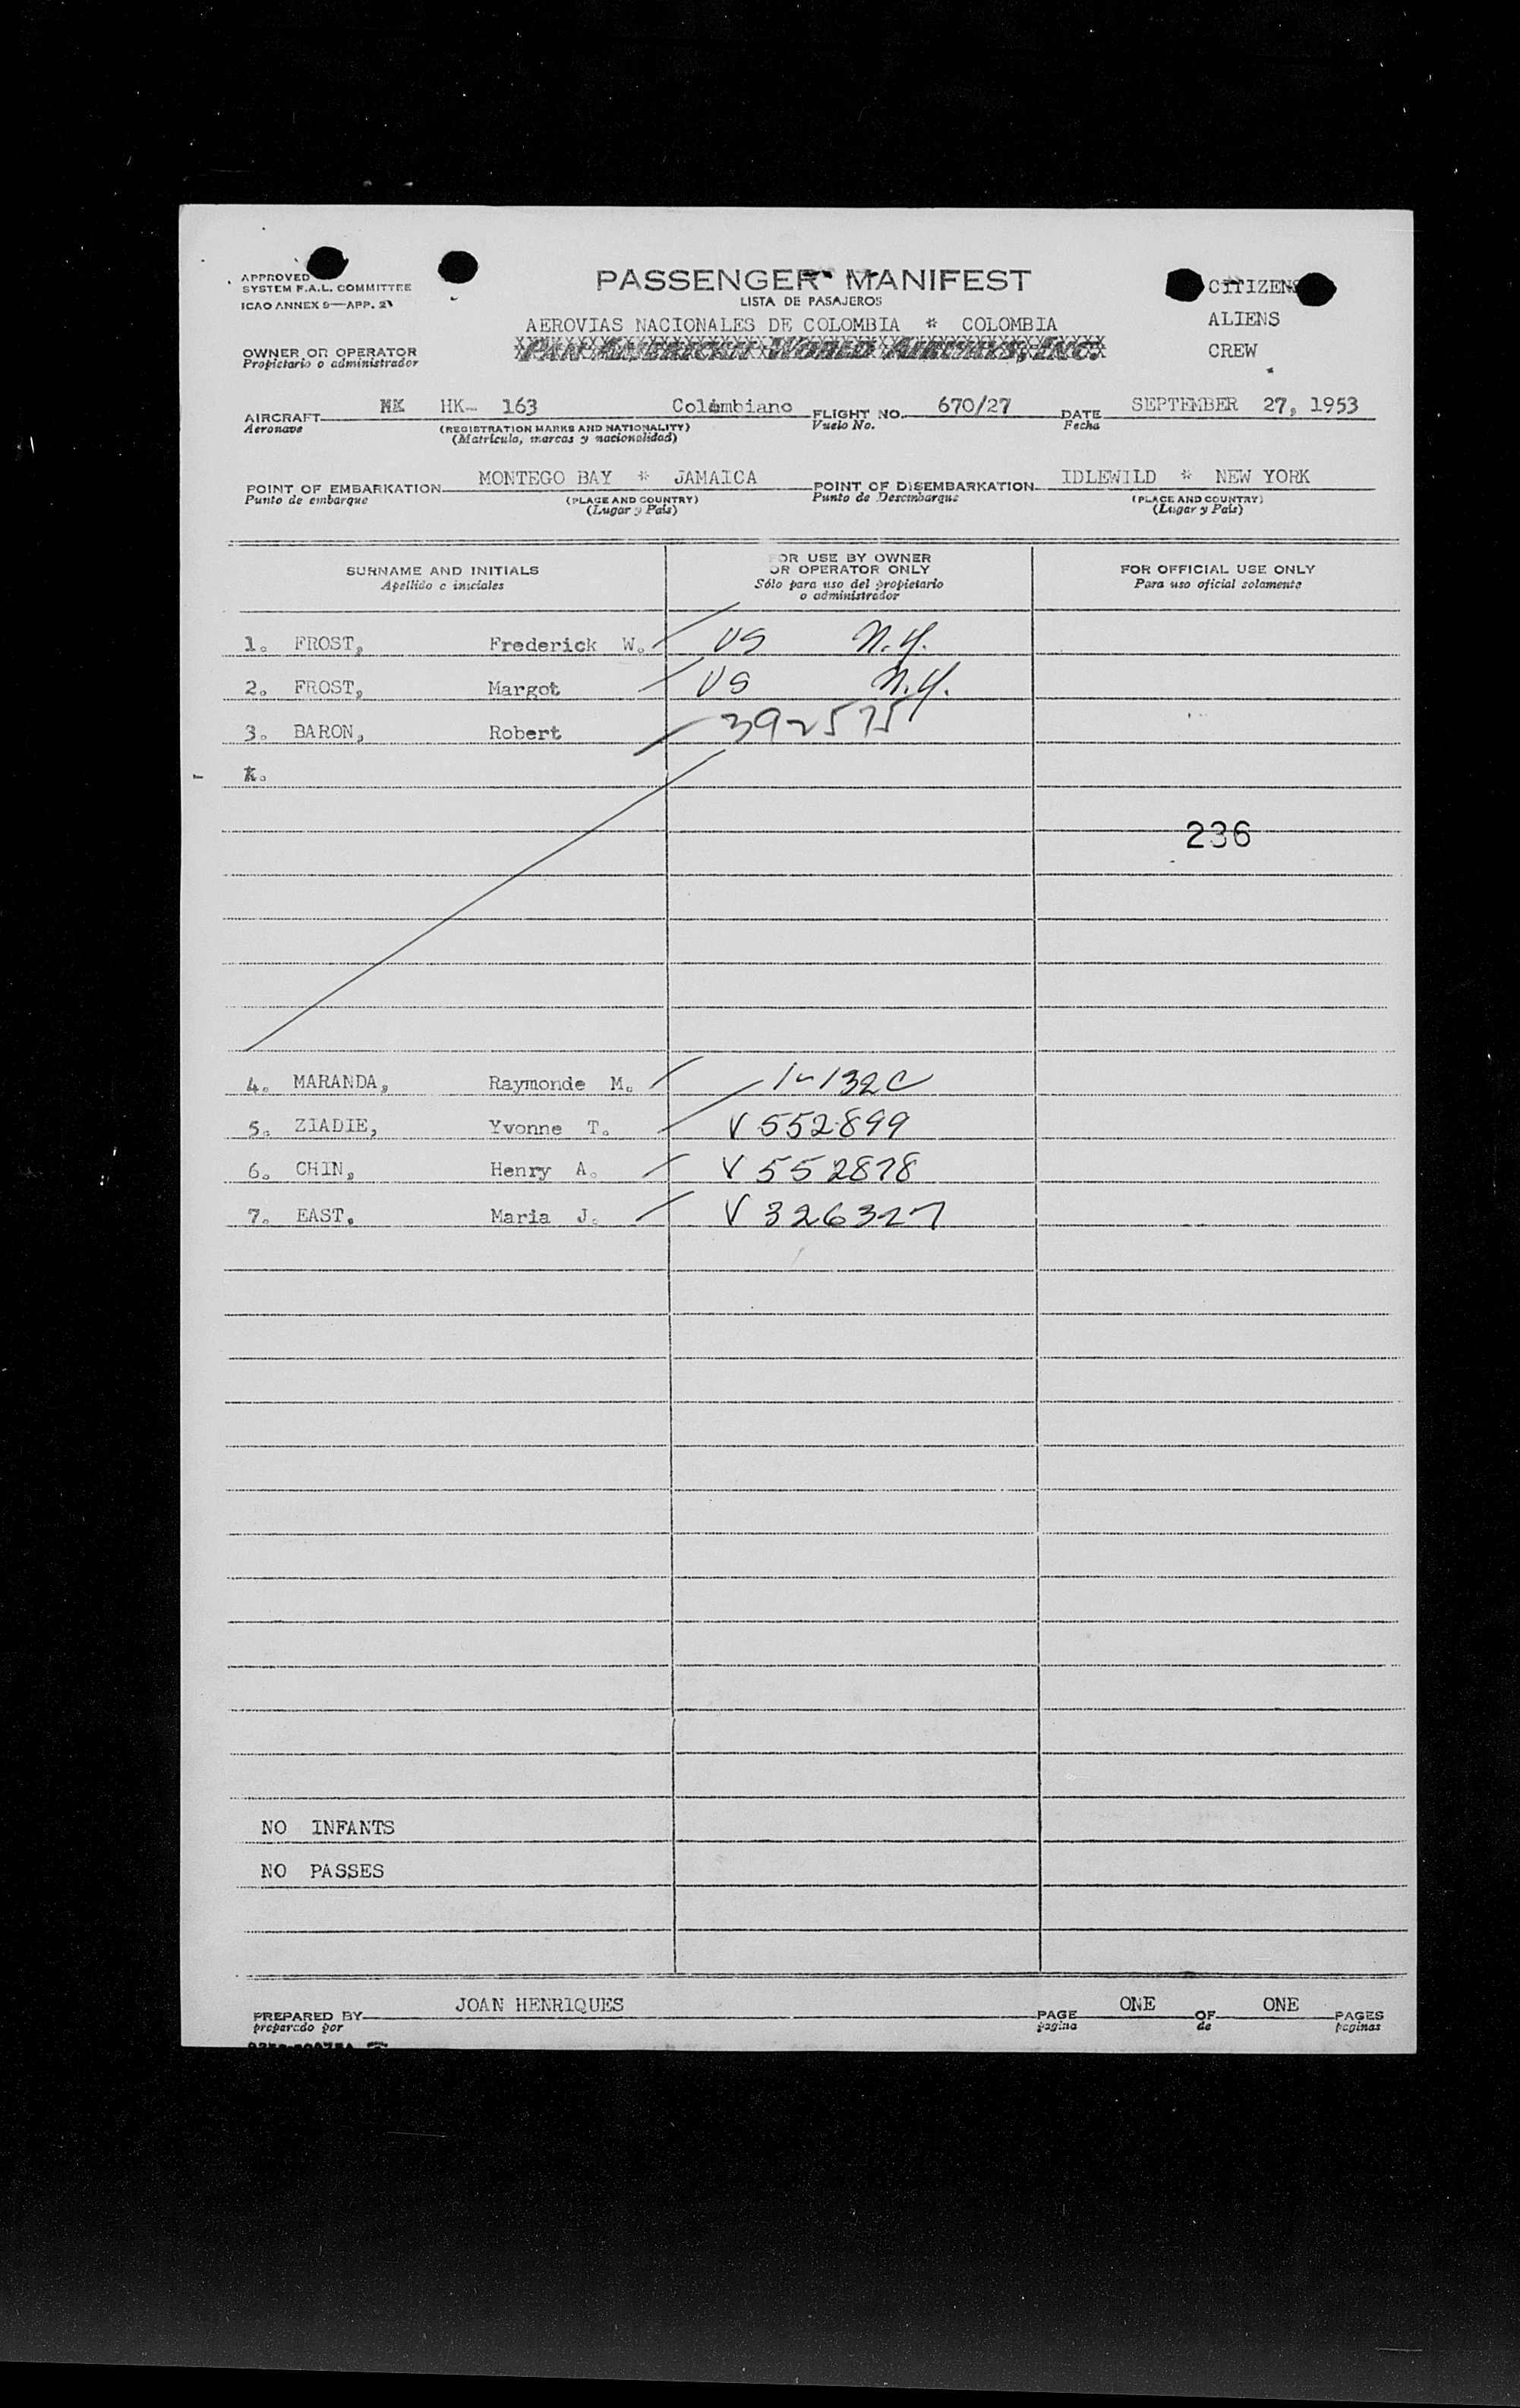 APPROVED
SYSTEM F.A.L. COMMITTEE
ICAO ANNEX 9—APP. 2
PASSENGER MANIFEST
LISTA DE PASAJEROS
CITIZENS
ALIENS
CREW
AEROVIAS NACIONALES DE COLOMBIA * COLOMBIA
PAN AMERICAN WORLD AIRWAYS, INC.
OWNER OR OPERATOR
Propietario o administrador
AIRCRAFT HK- 163 Colombiano FLIGHT NO. 670/27 DATE SEPTEMBER 27, 1953
Aeronave (REGISTRATION MARKS AND NATIONALITY) Vuelo No. Fecha
(Matrícula, marcas y nacionalidad)
POINT OF EMBARKATION MONTEGO BAY * JAMAICA POINT OF DISEMBARKATION IDLEWILD * NEW YORK
Punto de embarque (PLACE AND COUNTRY) Punto de Desembarque (PLACE AND COUNTRY)
(Lugar y País) (Lugar y País)
SURNAME AND INITIALS
Apellido e iniciales
FOR USE BY OWNER
OR OPERATOR ONLY
Sólo para uso del propietario
o administrador
FOR OFFICIAL USE ONLY
Para uso oficial solamente
1. FROST, Frederick W. US N.Y.
2. FROST, Margot US N.Y.
3. BARON, Robert 392575
236
4. MARANDA, Raymonde M.
5. ZIADIE, Yvonne T. V 552899
6. CHIN, Henry A. V 552878
7. EAST. Maria J. V 326327
NO INFANTS
NO PASSES
PREPARED BY JOAN HENRIQUES PAGE ONE OF ONE PAGES
preparado por pagina de paginas